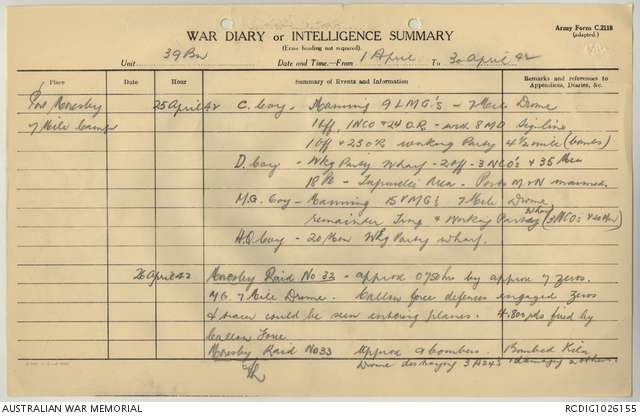 Army Form C.2118
(adapted.)
WAR DIARY or INTELLIGENCE SUMMARY
(Erase heading not required).
Unit 39 Bn Date and Time.—From 1 April To 30 April 42
Place Date Hour Summary of Events and Information Remarks and references to Appendices, Diaries, &c.
Port Moresby 25 April 42 C. Coy - Manning 9 LMG's - 7 Mile Drome
7 Mile Camp 1 Off, 1 NCO & 24 O.R - and 8 MD Sigs line
1 Off & 23 O.R working Party 4½ mile (bombs)
D. Coy - Wkg Party Wharf - 2 Off - 3 NCO's & 35 Men
18 Pl - Area - Posts M & N manned.
M.G. Coy - Manning 15 V MG's 7 Mile Drome
remainder Trng & Working Party Wharf (3 NCOs & 20 Men)
H.Q Coy - 20 Men Wkg Party wharf.
26 April 42 Moresby Raid No 32 - approx 0750 hrs by approx 7 Zeros.
MG 7 Mile Drome. Callow force defences engaged Zeros
& tracer could be seen entering planes. 4,800 rds fired by
Callow Force
Moresby Raid No 33 Approx 9 bombers. Bombed Kila
Drome destroying 3 A24s damaging 2 others.
AUSTRALIAN WAR MEMORIAL RCDIG1026155